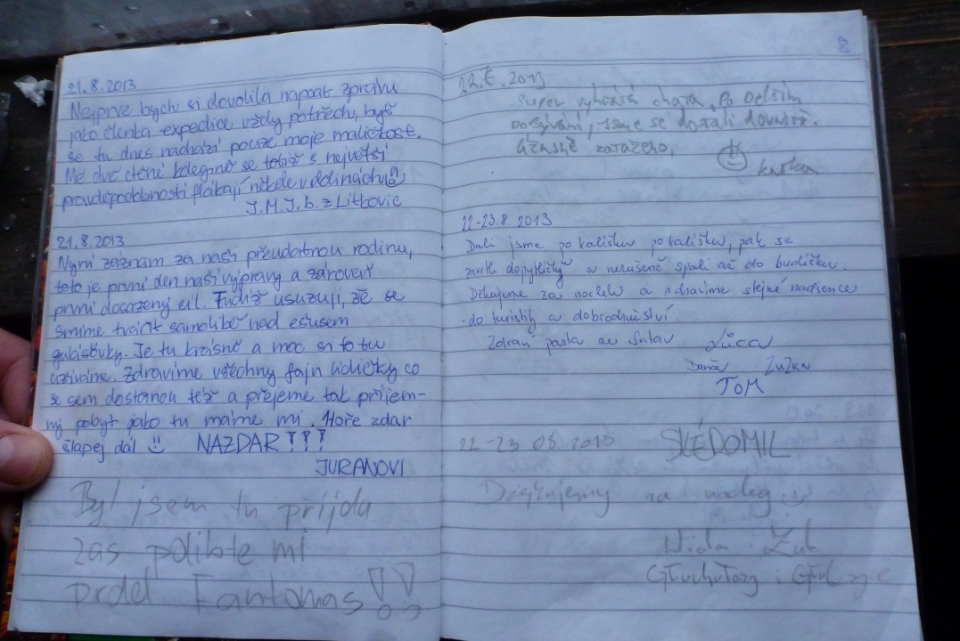 21.8.2013
Nejprve bych si dovolila napsat zprávu
jako členka expedice vždy potřeďu, byť
se tu dnes nachází pouze moje maličkost.
Mé dvě ctěné kolegině se totiž s největší
pravděpodobností flákají někde v
J.M.J. b. z Litbovic
21.8.2013
Nyní záznam za naši převdatnou rodinu,
toto je první den naší výpravy a zároveň
první dosažený cíl. Tudíž usuzuji, že se
smíme tvářit samolibě nad ešusem
gulášovky. Je tu krásně a moc si to tu
užíváme. Zdravíme všechny fajn lidičky co
se sem dostanou též a přejeme tak příjem-
ný pobyt jako tu máme mi. Hoře zdar
šlapej dál NAZDAR!!!
JURANOVI
Byl jsem tu příjdu
zas polibte mi
prdel Fantomas!!
8
22.8.2013
Super vyhřátá chata, Po Delším
Dobývání, jsme se dostali dovnitř.
Úžasně zataženo.
22-23.8.2013
Dali jsme po kalíšku po kalíšku, pak se
a nerušeně spali až do budíčku.
Děkujeme za nocleh a zdravíme stejné nadšence
do turistiky a dobrodružství.
Zdraví parta ze Svitav Lůca
Zuzka
TOM
22-23 08 2013 SVĚDOMIL
Dziękujemy na nocleg :)
i Żuk